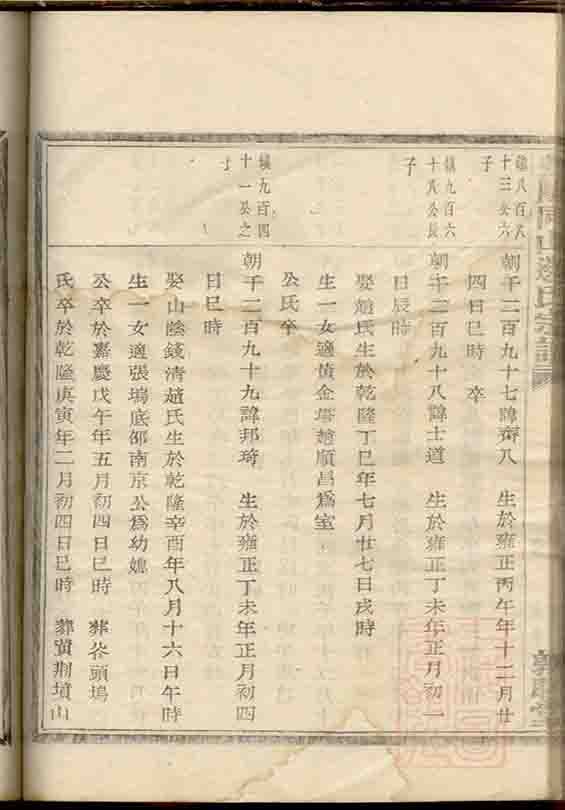 八百八
十三公六
子
朝千二百九十七諱齊八　生於雍正丙午年十二月廿
四日巳時　卒
慎九百六
十八公長
子
朝千二百九十八諱士道　生於雍正丁未年正月初一
日辰時
娶趙氏生於乾隆丁巳年七月廿七日戌時
生一女適黃金塔趙順昌爲室
公氏卒
慎九百四
十一公之
子
朝千二百九十九諱邦琦　生於雍正丁未年正月初四
日巳時
娶山陰錢清趙氏生於乾隆辛酉年八月十六日午時
生一女適張塢底邵南京公爲幼媳
公卒於嘉慶戊午年五月初四日巳時　葬岺頭塢
氏卒於乾隆庚寅年二月初四日巳時　葬貲荆墳山